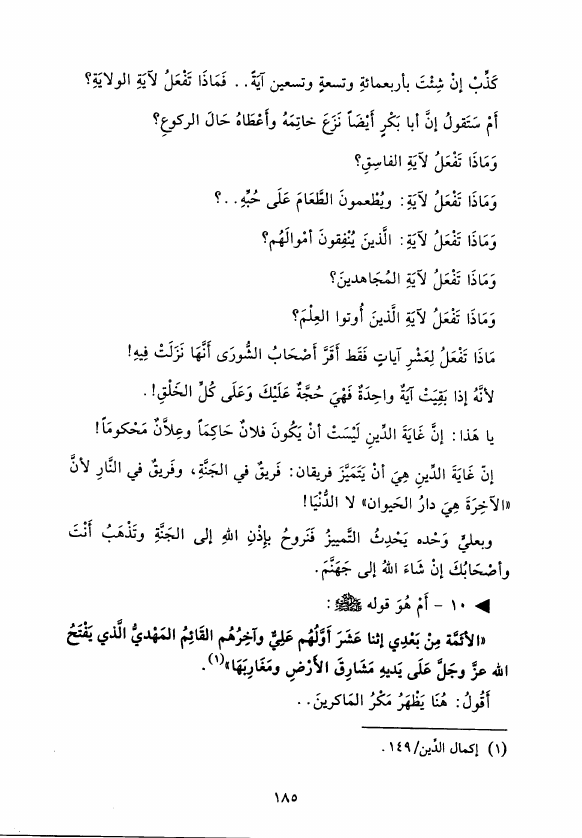 كَذِّبْ إنْ شِئْتَ بأربعمائةٍ وتسعةٍ وتسعين آيَةً.. فَمَاذَا تَفْعَلُ لآيَةِ الولايَةِ؟
أمْ سَتَقولُ إنَّ أبا بَكْرٍ أيْضَاً نَزَعَ خاتِمَهُ وأعْطَاهُ حَالَ الركوعِ؟
وَمَاذَا تَفْعَلُ لآيَةِ الفاسِقِ؟
وَمَاذَا تَفْعَلُ لآيَةِ: ويُطْعمونَ الطَّعَامَ عَلَى حُبِّهِ..؟
وَمَاذَا تَفْعَلُ لآيَةِ: الَّذينَ يُنْفِقونَ أمْوالَهُم؟
وَمَاذَا تَفْعَلُ لآيَةِ المُجَاهدينَ؟
وَمَاذَا تَفْعَلُ لآيَةِ الَّذينَ أُوتوا العِلْمَ؟
مَاذَا تَفْعَلُ لِعَشْرِ آياتٍ فَقَط أقَرَّ أصْحَابُ الشُّورَى أنَّهَا نَزَلَتْ فِيهِ!
لأنَّهُ إذا بَقِيَتْ آيَةٌ واحِدَةٌ فَهْيَ حُجَّةٌ عَلَيْكَ وَعَلَى كُلِّ الخَلْقِ!.
يا هَذا: إنَّ غايَةَ الدِّينِ لَيْسَتْ أنْ يَكُونَ فلانٌ حاكِمَاً وعِلاَّنٌ مَحْكوماً!
إنّ غَايَةَ الدِّينِ هِيَ أنْ يَتَمَيَّزَ فريقان: فَريقٌ في الجَنَّةِ، وفَريقٌ في النَّارِ لأنَّ
«الآخِرَةَ هِيَ دارُ الحَيوان» لا الدُّنْيَا!
وبعليٍّ وَحْده يَحْدِثُ التَّمييزُ فَنَروحُ بإذْنِ اللهِ إلى الجَنَّةِ وتَذْهَبُ أنْتَ
وأصْحَابُكَ إنْ شَاءَ اللهُ إلى جَهَنَّمَ.
◀ ١٠ - أمْ هُوَ قوله ﷺ:
«الأئمَّة مِنْ بَعْدِي إثنا عَشَرَ أوَّلُهُم عَلِيٌّ وآخِرُهُم القَائِمُ المَهْديُّ الَّذي يَفْتَحُ
الله عزَّ وجَلَّ عَلَى يَديهِ مَشَارِقَ الأرْضِ ومَغَارِبَهَا»(١).
أقُولُ: هُنَا يَظْهَرُ مَكْرُ المَاكرينَ..
(١) إكمال الدِّين/١٤٩.
١٨٥